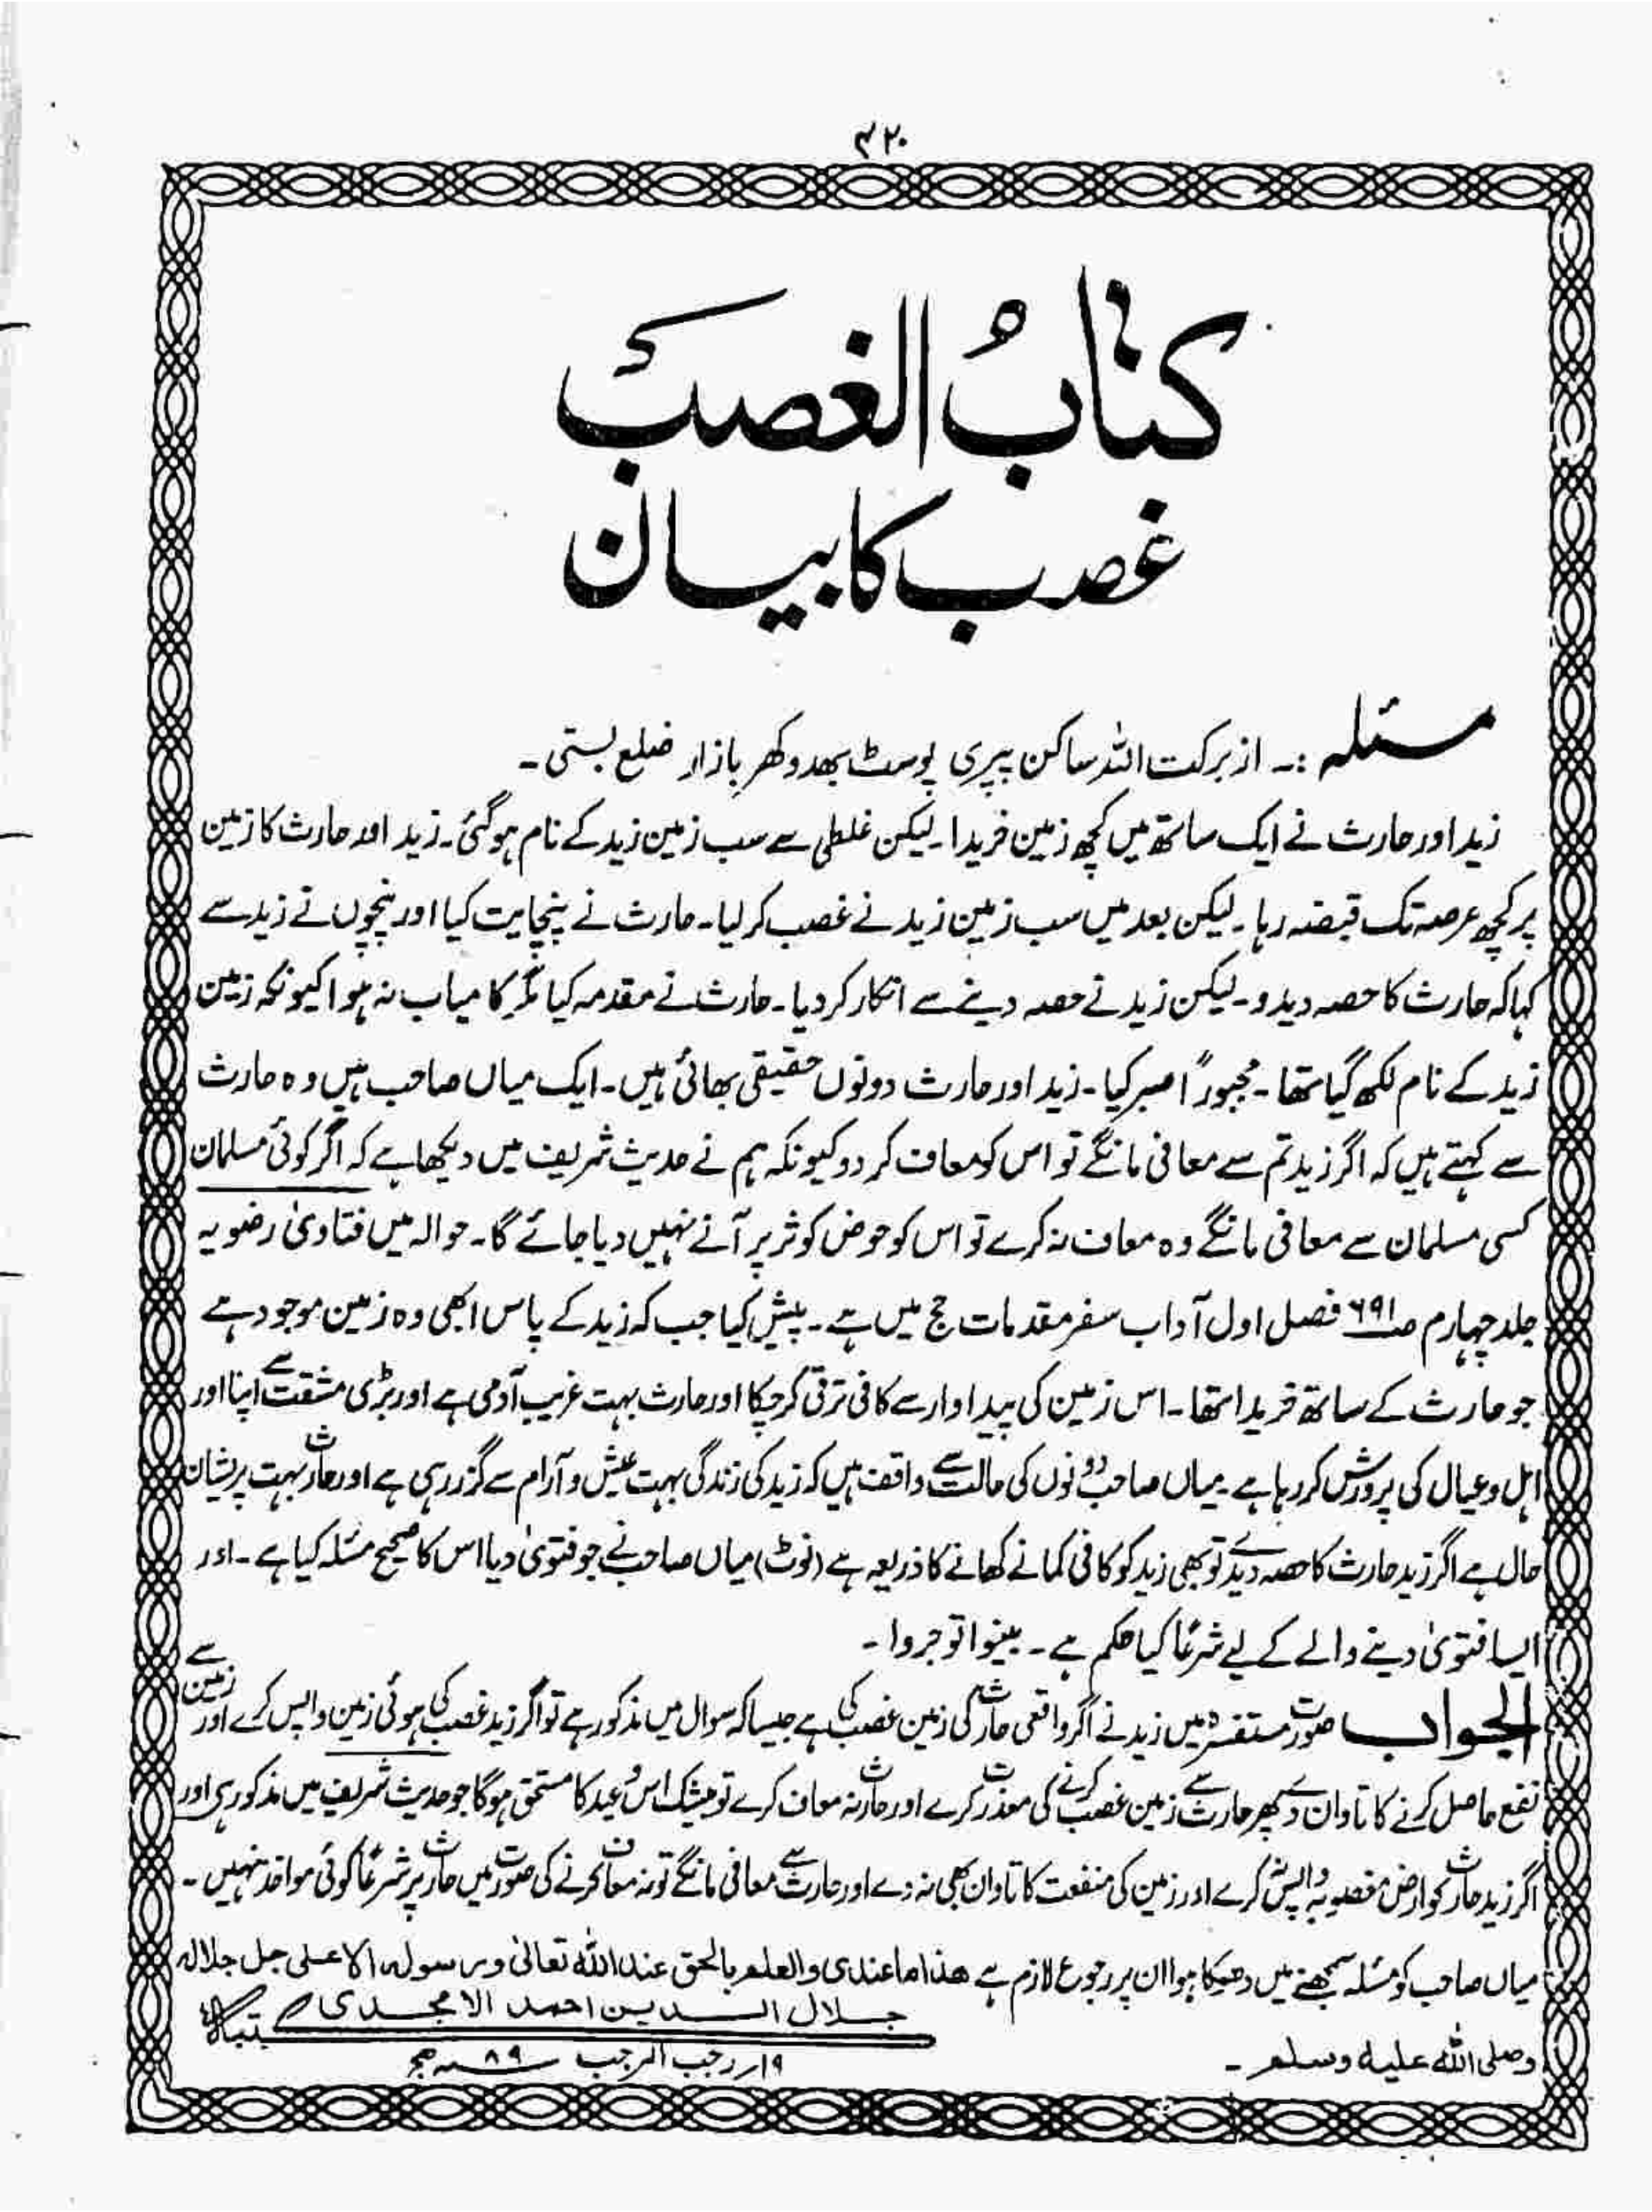 ۴۲۰
کتاب الغصب
غصب کا بیان
مسئلہ :۔ از برکت اللہ ساکن پیپری پوسٹ بھدوکھر بازار ضلع بستی ۔
زید اور حارث نے ایک ساتھ میں کچھ زمین خریدا۔ لیکن غلطی سے سب زمین زید کے نام ہوگئی۔ زید اور حارث کا زمین
پر کچھ عرصہ تک قبضہ رہا ۔ لیکن بعد میں سب زمین زید نے غصب کرلیا۔ حارث نے پنچایت کیا اور پنچوں نے زید سے
کہا کہ حارث کا حصہ دیدو۔ لیکن زید نے حصہ دینے سے انکار کردیا۔ حارث نے مقدمہ کیا مگر کامیاب نہ ہوا کیونکہ زمین
زید کے نام لکھ گیا تھا ۔ مجبوراً صبر کیا ۔ زید اور حارث دونوں حقیقی بھائی ہیں۔ ایک میاں صاحب ہیں وہ حارث
سے کہتے ہیں کہ اگر زید تم سے معافی مانگے تو اس کو معاف کردو کیونکہ ہم نے حدیث شریف میں دیکھا ہے کہ اگر کوئی مسلمان
کسی مسلمان سے معافی مانگے وہ معاف نہ کرے تو اس کو حوض کوثر پر آنے نہیں دیا جائے گا۔ حوالہ میں فتاویٰ رضویہ
جلد چہارم صـ۶۹۱ فصل اول آداب سفر مقدمات حج میں ہے ۔ پیش کیا جب کہ زید کے پاس ابھی وہ زمین موجود ہے
جو حارث کے ساتھ خریدا تھا۔ اس زمین کی پیداوار سے کافی ترقی کرچکا اور حارث بہت غریب آدمی ہے اور بڑی مشقت سے اپنا اور
اہل و عیال کی پرورش کررہا ہے ۔ میاں صاحب دونوں کی حالت سے واقف ہیں کہ زید کی زندگی بہت عیش و آرام سے گزر رہی ہے اور حارث بہت پریشان
حال ہے اگر زید حارث کا حصہ دیدے تو بھی زید کو کافی کمانے کھانے کا ذریعہ ہے (نوٹ) میاں صاحب نے جو فتویٰ دیا اس کا صحیح مسئلہ کیا ہے ۔ اور
ایسا فتویٰ دینے والے کے لیے شرعًا کیا حکم ہے ۔ بینوا توجروا ۔
الجواب صورت مستفسرہ میں زید نے اگر واقعی حارث کی زمین غصب کی ہے جیسا کہ سوال میں مذکور ہے تو اگر زید غصب کی ہوئی زمین واپس کرے اور زمین سے
نفع حاصل کرنے کا تاوان دے پھر حارث سے زمین غصب کرنے کی معذرت کرے اور حارث نہ معاف کرے تو بیشک اس وعید کا مستحق ہوگا جو حدیث شریف میں مذکور ہی اور
اگر زید حارث کو ارض مغصوبہ نہ واپس کرے اور زمین کی منفعت کا تاوان بھی نہ دے اور حارث سے معافی مانگے تو نہ معاف کرنے کی صورت میں حارث پر شرعًا کوئی مواخذہ نہیں ۔
میاں صاحب کو مسئلہ سمجھنے میں دھوکا ہوا ان پر رجوع لازم ہے ھذا ما عندی والعلم بالحق عند اللہ تعالیٰ ورسولہ الاعلی جل جلالہ
وصلی اللہ علیہ وسلم ۔
جلال الدین احمد الامجدی
کتبہ
۱۹؍ رجب المرجب ۸۹ھ